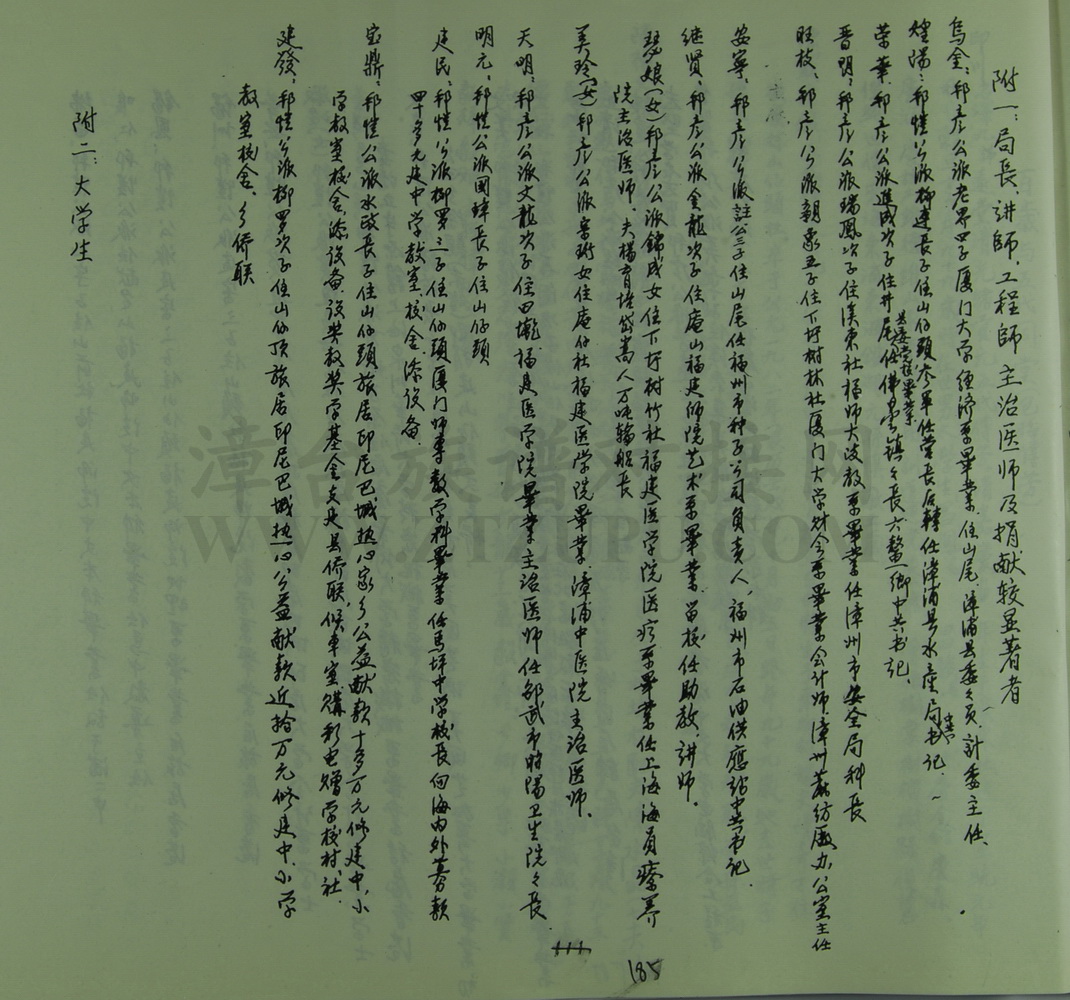 附一：局長、讲師、工程師 主治医师及捐献较显著者
乌金：邦彦公派老界四子厦门大学经济系畢業、住山尾、漳浦县委々员、計委主任、
煌陽：邦惟公派柳達長子住山仔頭、参軍任营長后轉任漳浦县水產局書记、
荣華、邦彦公派進成次子住井尾任佛曇镇々長六鳌鄉中共书记、
县委党校畢業
晋明：邦彦公派瑞鳳次子住溪東社福师大政教系畢業任漳州市安全局科長
旺枝、邦彦公派朝象五子住下圩樹林社厦门大学财会系畢業会计师漳州麻纺厰办公室主任
安寧：邦彦公派註公三子住山尾任福州市种子公司負责人，福州市石油供應站中共书记、
继贤、邦彦公派金龍次子住庵山福建师院艺术系畢業、留校任助教、讲师。
瑟娘（女）邦彦公派錦成女住下圩树竹社福建医学院医疗系畢業任上海海員療养
院主治医师、夫楊育培岱嵩人万吨轮船長
美玲（女）邦彦公派 女住庵仔社福建医学院畢業、漳浦中医院主治医师、
天明：邦彦公派文龍次子住田墘福建医学院畢業主治医师任邵武市時陽卫生院々長
明元：邦惟公派國璋長子住山仔頭
建民：邦惟公派柳罗三子住山仔頭厦门师専数学科畢業任馬坪中学校長向海内外募款
四十多万元建中学教室、校舍、添设备、
宝鼎：邦惟公派水政長子住山仔頭旅居印尼巴城热心家乡公益献款十多万元修建中、小
学教室校舍、添设备、设奖教奖学基金、支建县侨联、候車室、購彩电赠学校村社、
建發：邦惟公派柳罗次子住山仔顶旅居印尼巴城热心公益献款近拾万元修建中、小学
教室校舍、乡侨联
附二：大学生
185
漳台族谱对接网
WWW.ZTZUPU.COM